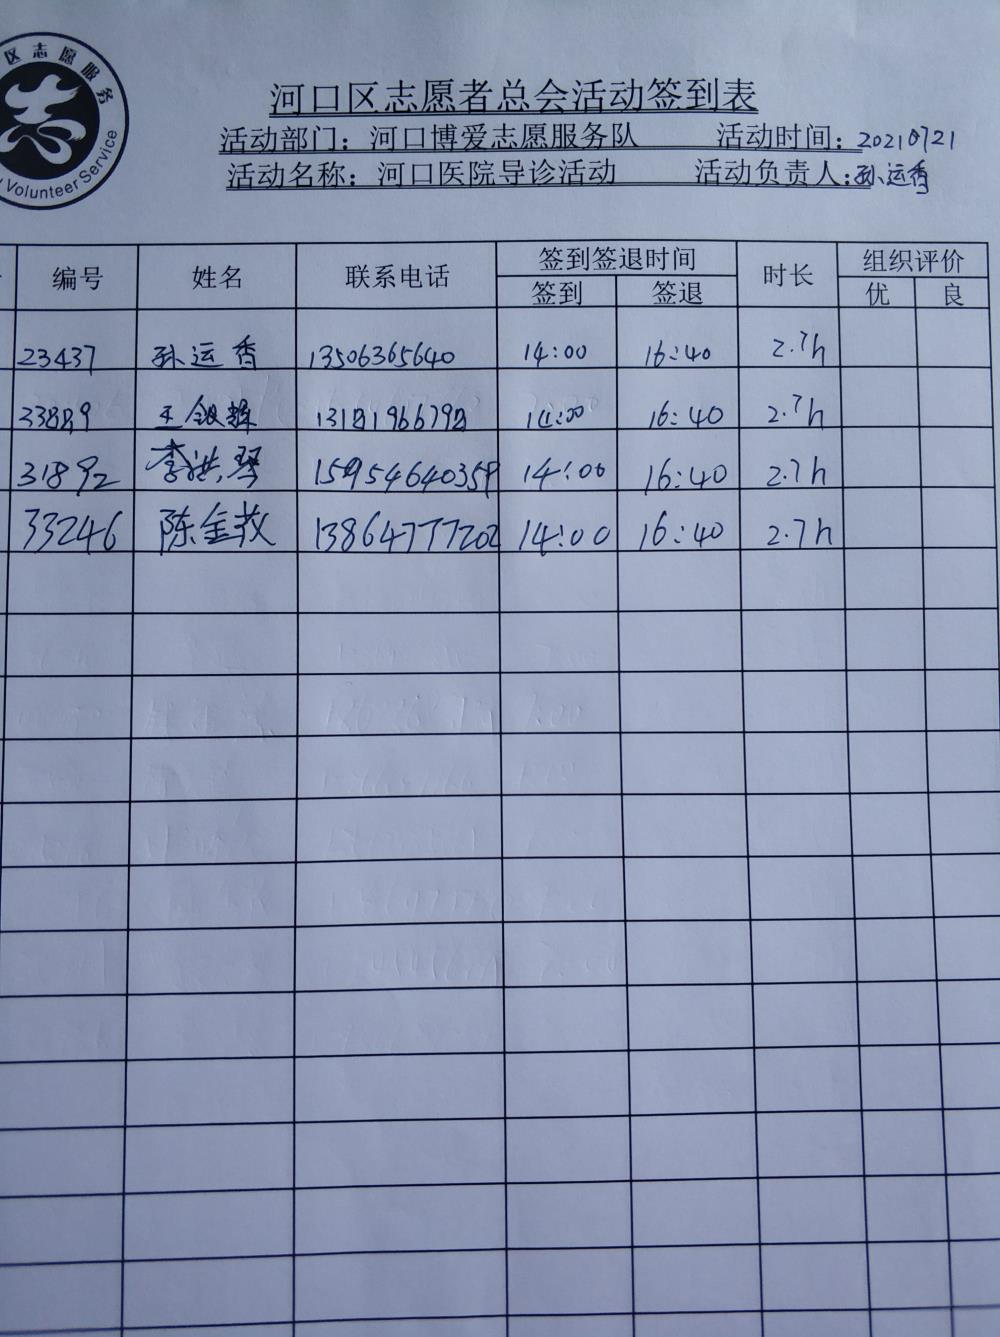 区志愿服务
Volunteer Service
河口区志愿者总会活动签到表
活动部门：河口博爱志愿服务队 活动时间：20210721
活动名称：河口医院导诊活动 活动负责人：孙运香
编号 姓名 联系电话 签到签退时间 时长 组织评价
签到 签退 优 良
23437 孙运香 13506365640 14:00 16:40 2.7h
王银辉 14:00 16:40 2.7h
31892 李洪琴 15954640359 14:00 16:40 2.7h
33246 陈金孜 13864777202 14:00 16:40 2.7h